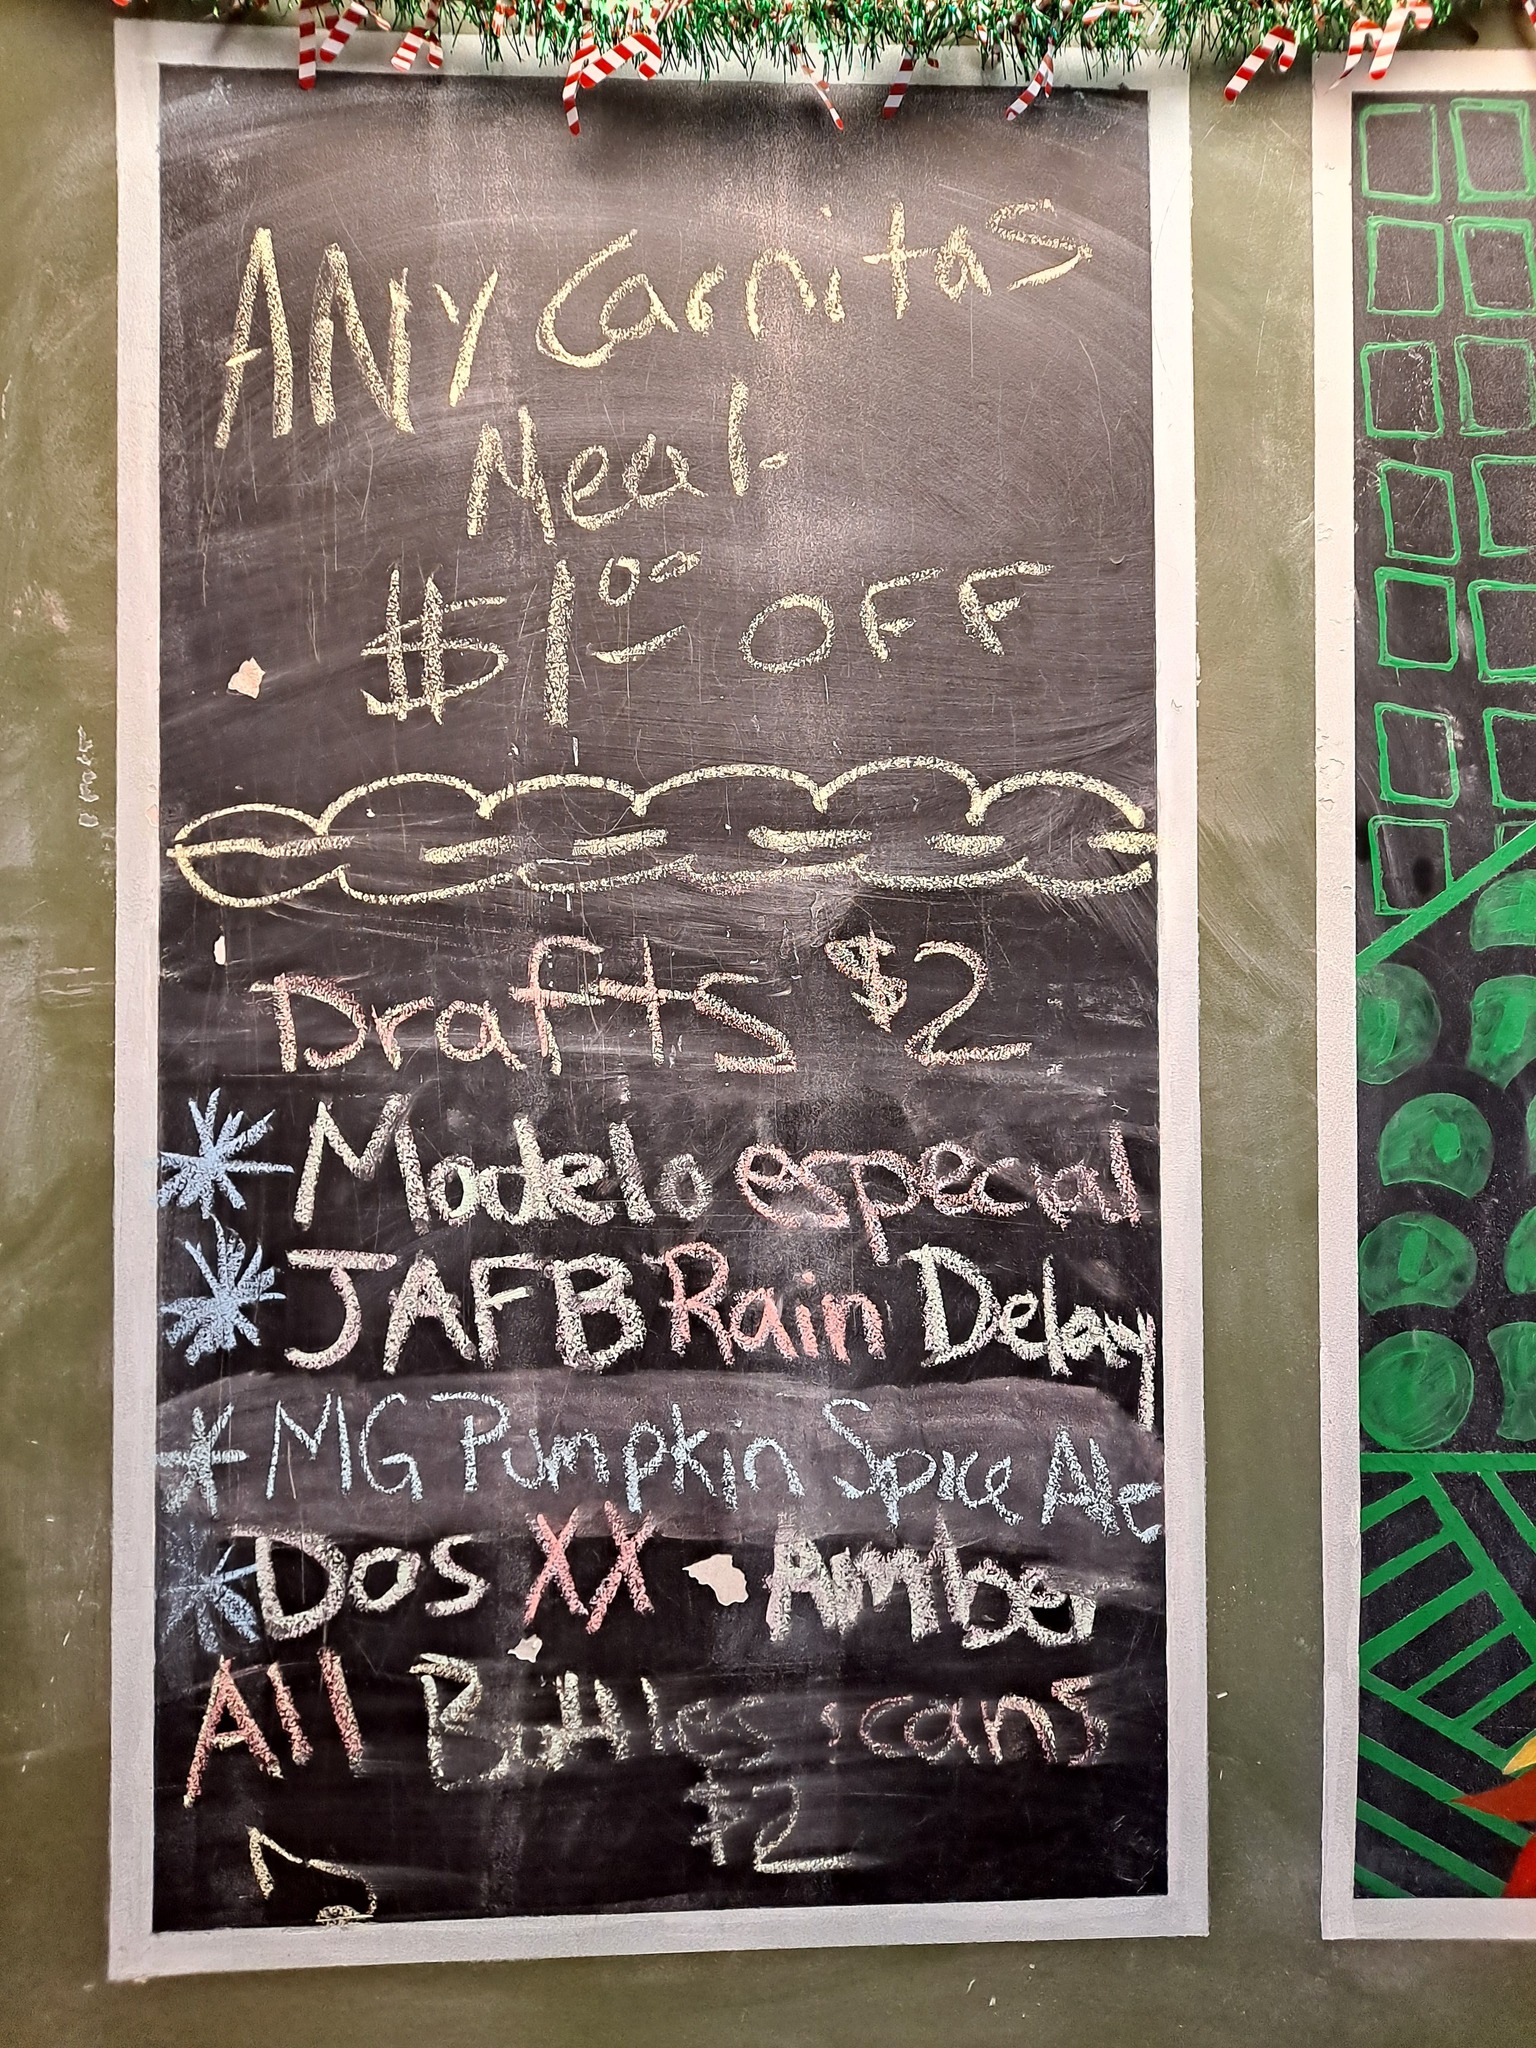 ANY Carnitas
Meal.
$1.00 OFF
Drafts $2
* Modelo especial
* JAFB Rain Delay
* MG Pumpkin Spice Ale
* Dos XX Amber
All Bottles scans
$2